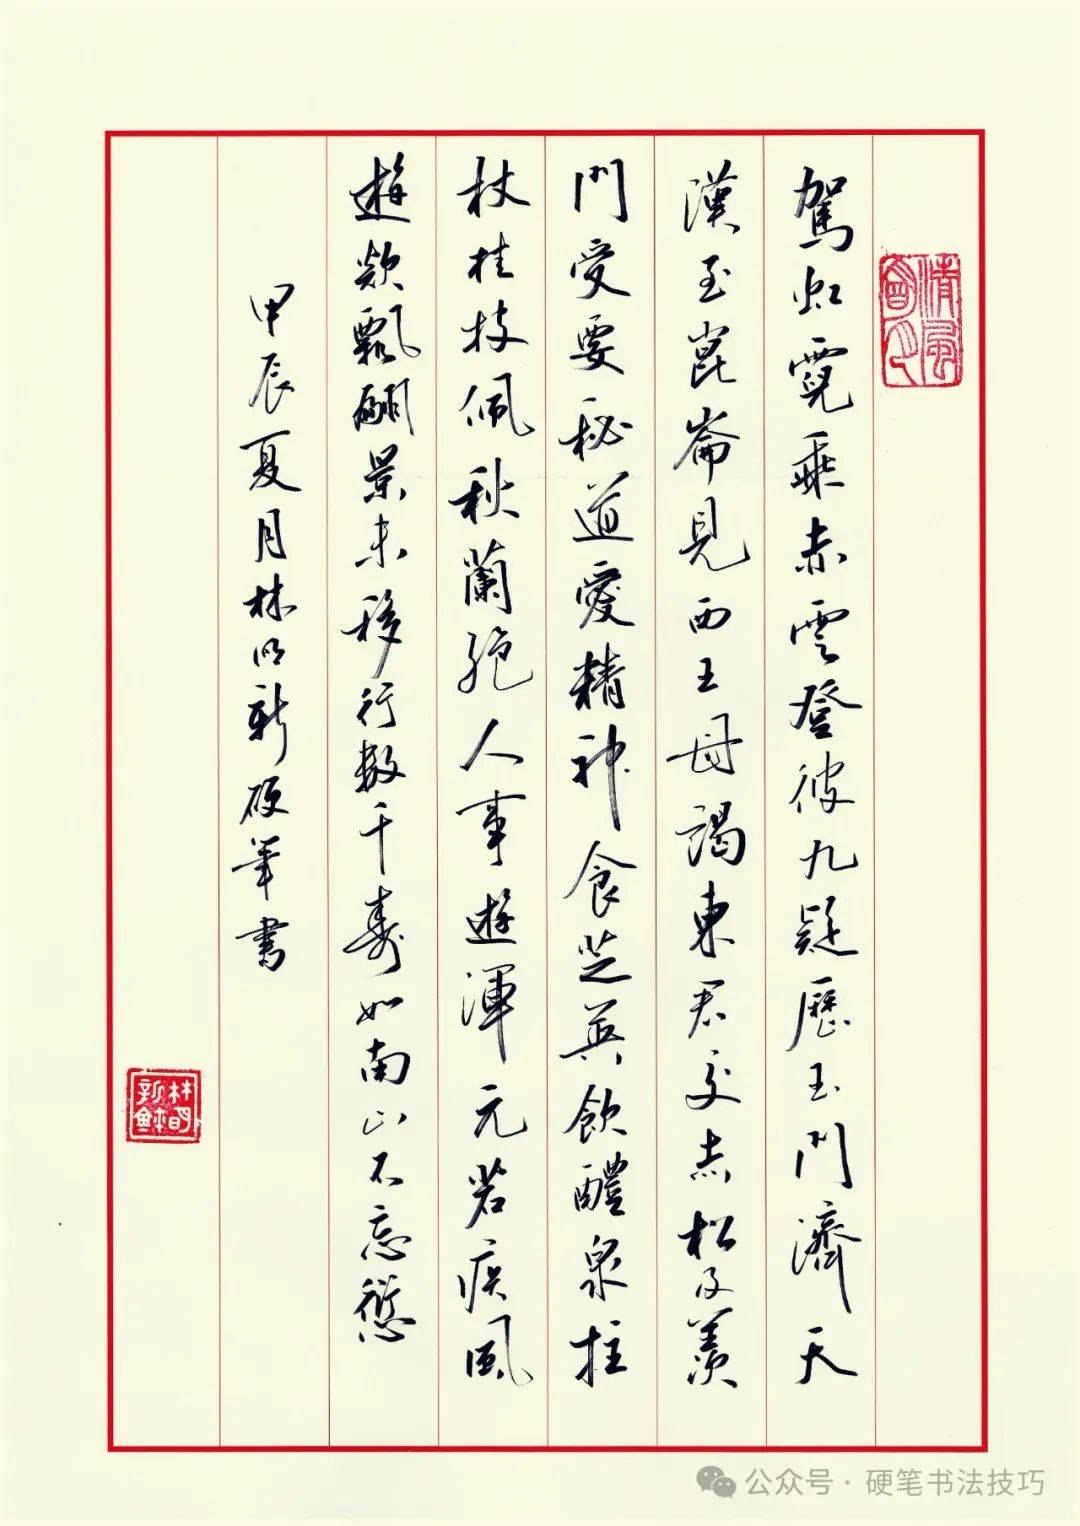 駕虹霓乘赤雲登彼九疑歷玉門濟天
漢至崑崙見西王母謁東君交赤松及羨
門受要秘道愛精神食芝英飲醴泉拄
杖桂枝佩秋蘭絕人事遊渾元若疾風
遊欻飄翩景未移行數千壽如南山不忘愆
甲辰夏月林明新硬筆書
林明新鉨
公众号·硬笔书法技巧